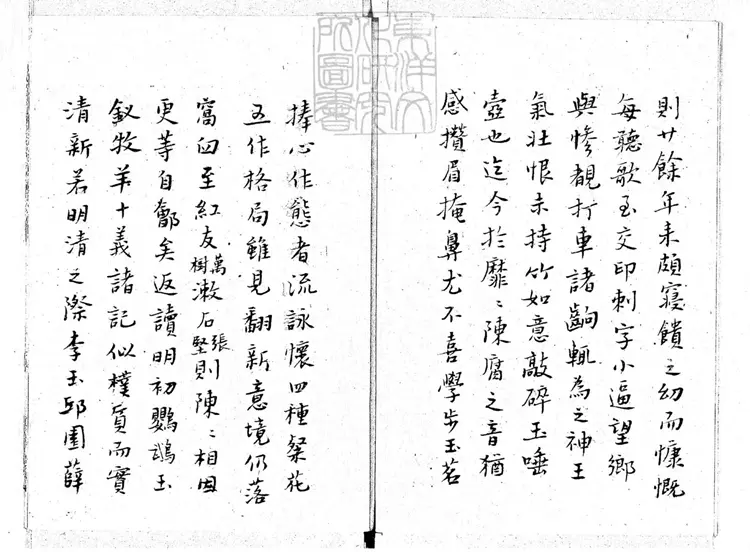 則廿餘年来頗寢饋之幼而慷慨
每聽歌至交印刺字小逼望鄉
與慘覩打車諸齣輒為之神王
氣壯恨未持竹如意敲碎玉唾
壺也迄今於靡〻陳腐之音猶
感攢眉掩鼻尤不喜學步玉茗
捧心作態者流詠懷四種粲花
五作格局雖見翻新意境仍落
窩臼至紅友萬樹漱石張堅則陳〻相因
更等自鄶矣返讀明初鸚鵡玉
釵牧羊十義諸記似樸質而實
清新若明清之際李玉邱園薛
東洋文化研究所圖書